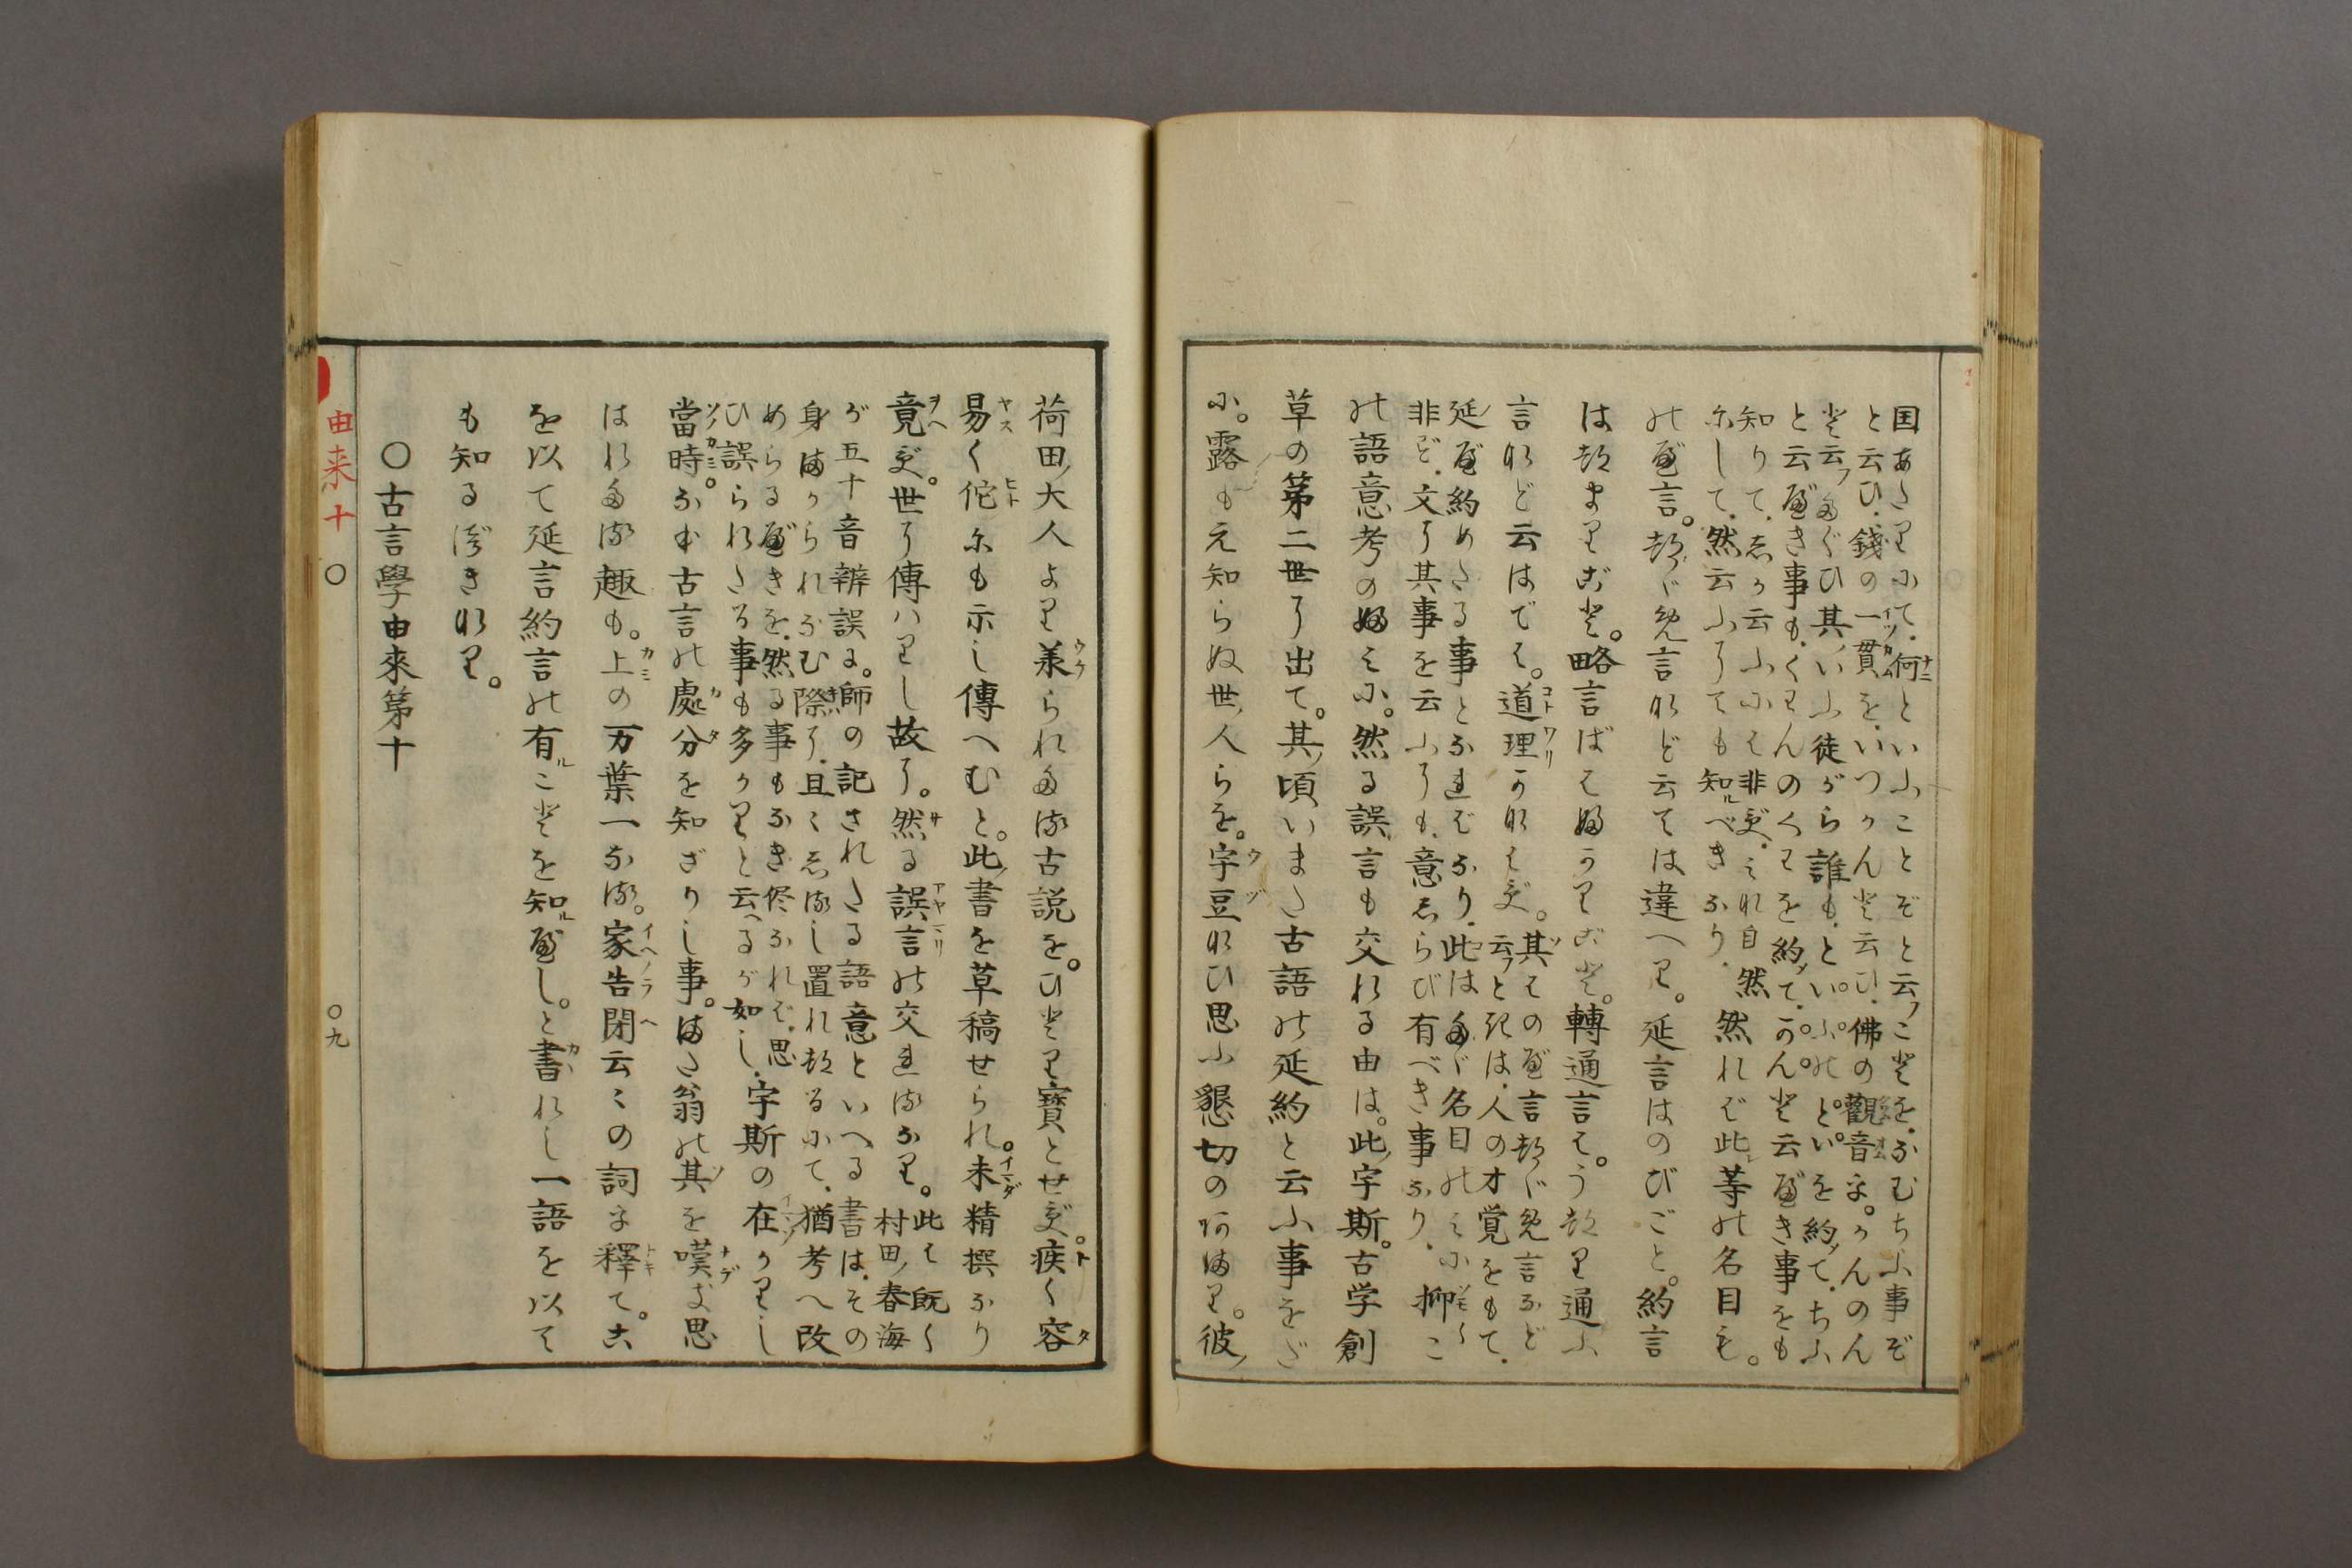 国あたりにて、何といふことぞと云フことを、なむちふ事ぞ
と云ひ、錢の一貫を、いつかんと云ひ、佛の觀音を、かんのん
と云フたぐひ、其いふ徒がら誰も、といふのといを約メて、ちふ
と云べき事も、くわんのくわを約メて、かんと云べき事をも
知りて、しか云ふには非ず、これ自然
にして、然云ふりても知ルべきなり、然れば此等の名目も。
の延言。約言など云ては違へり。延言はのびごと。約言
はつまりごと。略言ばはぶかりごと。轉通言は。うつり通ふ
言など云はでは。道理かなはず。其はの延言つゞめ言など
云フと記は、人の才覚をもて、
延べ約めたる事となればなり、此はたゞ名目のみに
非ず、文に其事を云ふにも、意しらび有べき事なり、抑こ
の語意考のはじに。然る誤言も交れる由は。此宇斯。古学創
草の第二世に出て。其頃いまだ古語の延約と云ふ事をだ
に。露もえ知らぬ世ノ人らを。宇豆なひ思ふ懇切のあまり。彼ノ
荷田ノ大人より羕られたる古説を。ひとり寳とせず。疾く容
易く佗にも示し傳へむと。此ノ書を草稿せられ。未精撰なり
竟ず。世に傳はりし故に。然る誤言の交れるなり。此は既く
村田ノ春海
が五十音辨誤に。師の記されたる語意といへる書は、その
身まかられなむ際に、且ゝしるし置れつるにて、猶考へ改
めらるべきを、然る事もなき侭なれば、思
ひ誤られたる事も多かりと云へるが如し、宇斯の在かりし
當時。なお古言の處分を知ざりし事。また翁の其を嘆き思
はれたる趣も。上の万葉一なる。家告閇云ゝの詞を釋て。古
を以て延言約言の有ルことを知ルべし。と書れし一語を以て
も知るべきなり。
〇古言學由來第十
由来十 〇
〇九